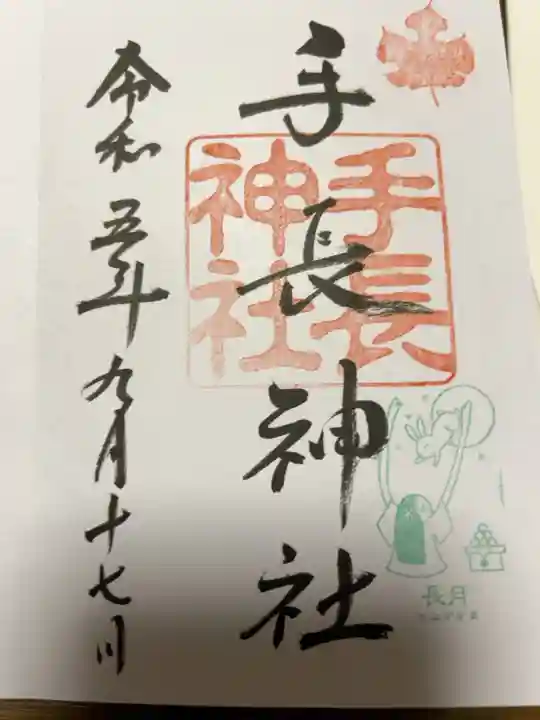 手長神社
手長
神社
令和五年九月十七日
長月